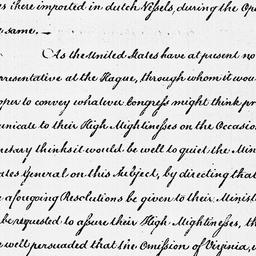 s there imported in dutch Vessels, during the Ope
e same. —
As the United States have at present no
epresentative at the Hague, through whom it wou
oper to convey whatever Congress might think pr
unicate to their High Mightinesses on the Occasion
retary thinks it would be well to quiet the Min
ates General on this Subject, by directing that
e aforegoing Resolutions be given to their Minist
be requested to assure their High Mightinesses, th
e well persuaded that the Omission of Virginia, u